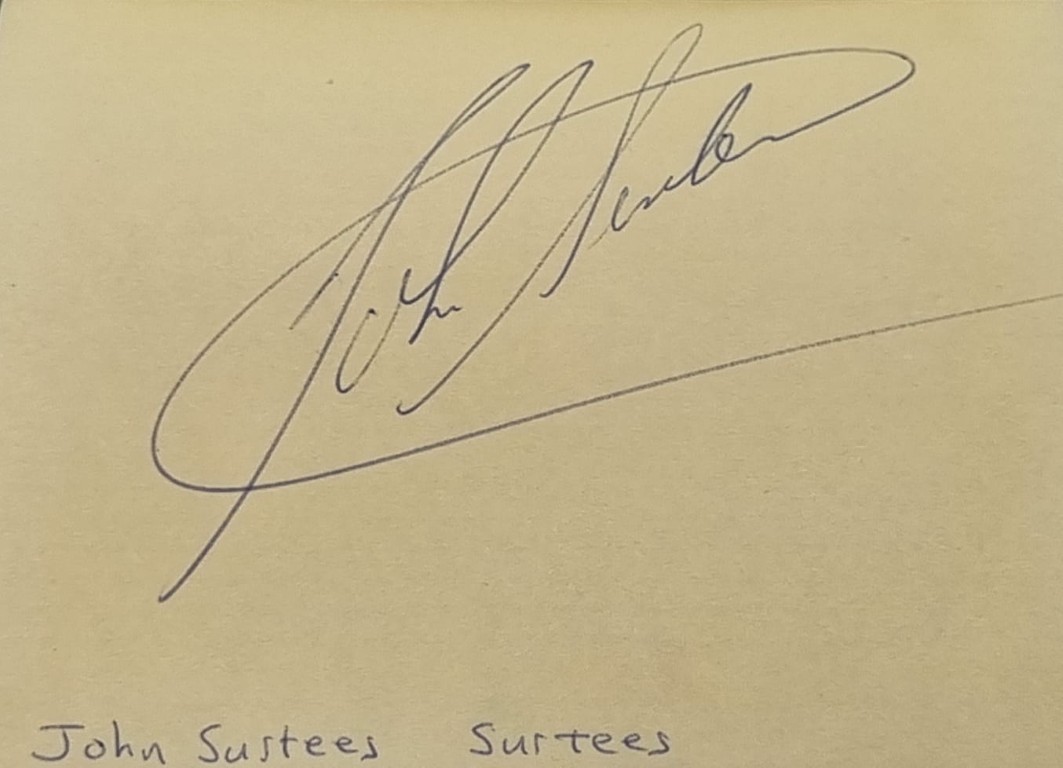 John Surtees
John Sustees Surtees